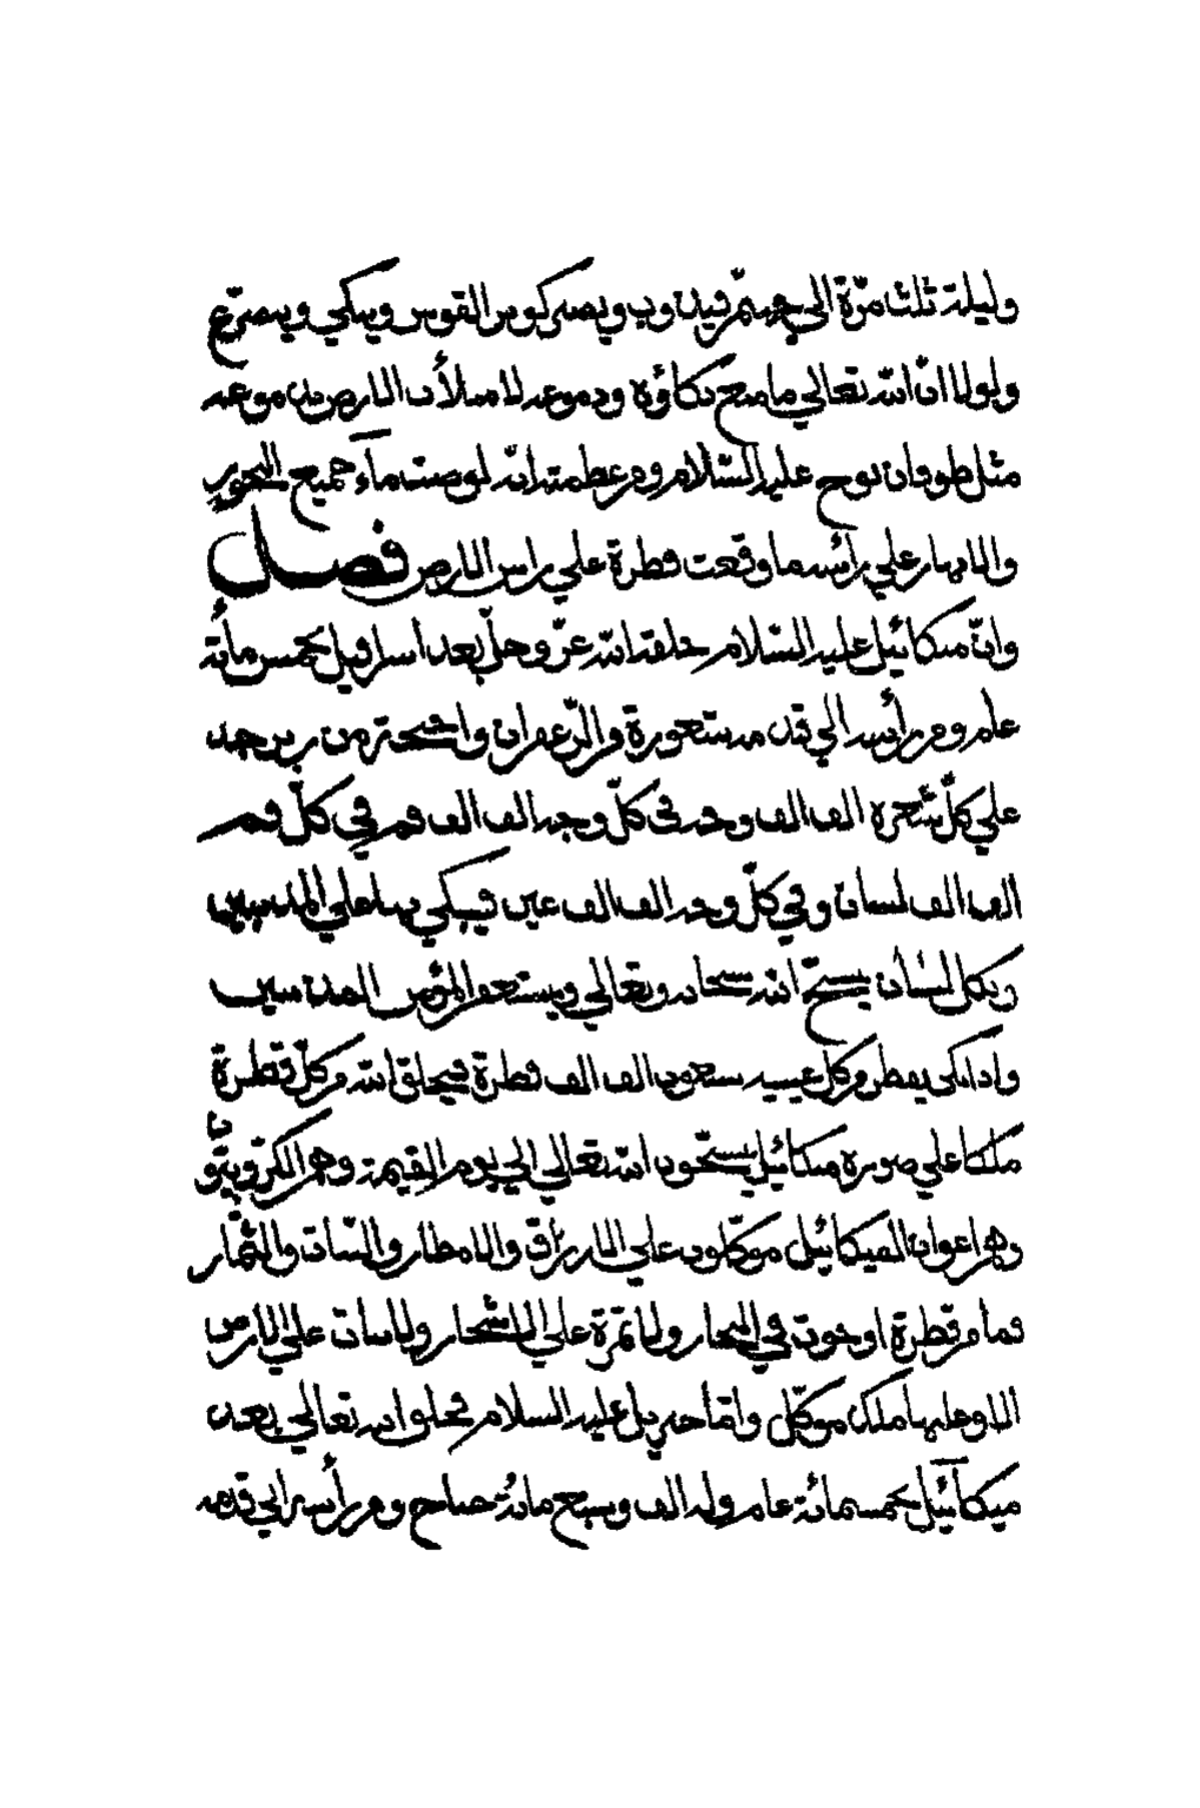 وليلة ثلث مرّة الي جهنّم فيذوب ويصير كوتر القوس ويبكي ويتضرّع
ولولا انّ الله تعالي ما منع بكاؤه ودموعه لامتلأت الارض بدموعه
مثل طوفان نوح عليه السّلام ومن عظمته انه لو صبت مآء جميع البحور
والانهار علي رأسه ما وقعت قطرة علي راس الارض فصل
وانّ ميكائيل عليه السّلام خلقه الله عزّ وجلّ بعد اسرافيل بخمس مأته
عام ومن رأسه الي قدمه شعورة من الزّعفران واجنحته من زبرجد
علي كلّ شعره الف الف وجه في كلّ وجه الف الف فم في كلّ فم
الف الف لسان وفي كلّ وجه الف الف عين فيبكي بها علي المذنبين
وبكل لسأن يسبّح الله سبحانه وتعالي ويستغفر المؤمن المذنبين
واذا بكى يقطر من كل عينيه سبعون الف الف قطرة فيخلق الله من كلّ قطرة
ملكا علي صوره ميكائيل يسبّحون الله تعالي الي يوم القيمة وهم الكرّوبيّون
وهم اعوان الميكائيل موكّلون علي الارزاق والامطار والنّبات والثّمار
فما من قطرة او حوت في البحار ولا ثمرة علي الاشجار ولا نبات علي الارض
الا وعليها ملك موكّل وامّا جبريل عليه السلام فخلق الله تعالي بعد
ميكآئيل بخمسمائة عام وله الف وسبع مائة جناح ومن رأسه الي قدمه